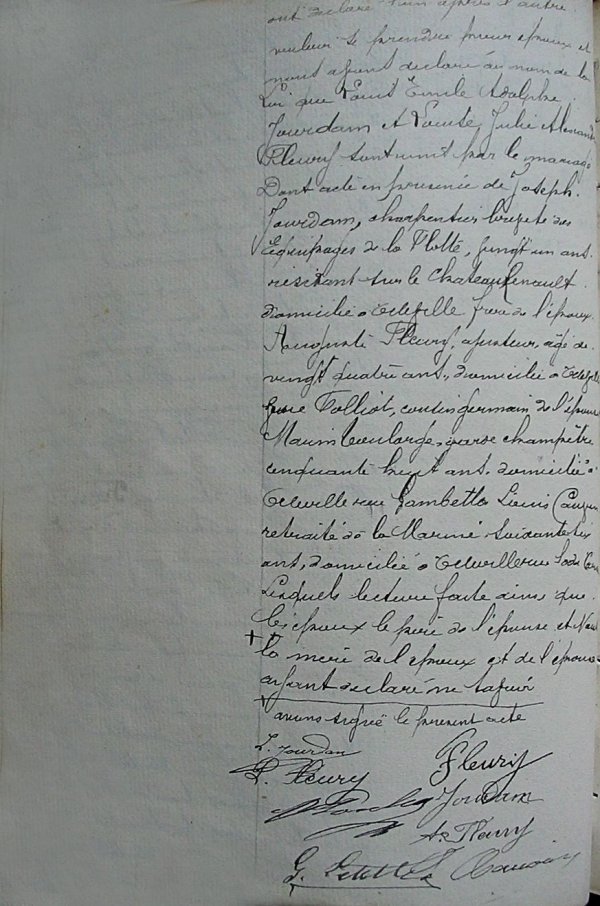 ont déclaré l'un après l'autre
vouloir se prendre pour époux et
nous ayant déclaré au nom de la
Loi que Louis Emile Adolphe
Jourdam et Louise Julie Alexand
Fleury sont unis par le mariage
Dont acte en présence de Joseph
Jourdam, charpentier breveté des
Equipages de la Flotte, vingt un ans
résidant sur le Chateau Renault
domicilié à frère de l'époux
Auguste Fleury, ajusteur, âgé de
vingt quatre ans, domicilié à
Folliot, cousin germain de l'épouse
garde champêtre
cinquante huit ans domicilié à
rue Gambetta Louis
retraité de la Marine soixante six
ans, domicilié à rue
Lesquels lecture faite ainsi que
les époux le père de l'épouse et Nous
la mère de l'époux et de l'épouse
ayant déclaré ne savoir
avons signé le présent acte
L. Jourdan
L. Fleury Fleury
Jourdam
A. Fleury
G.